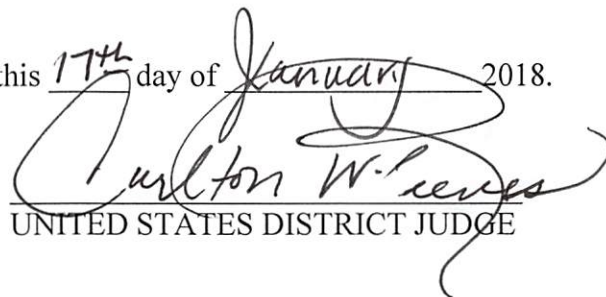 this 17th day of January 2018.
Carlton W. Reeves
UNITED STATES DISTRICT JUDGE